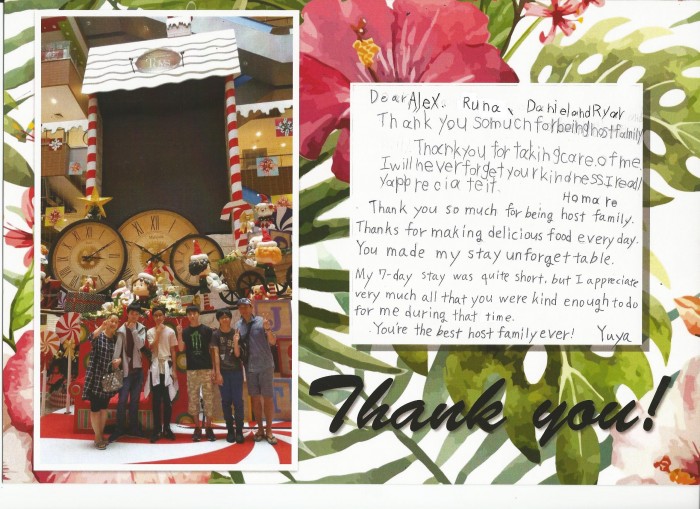 Dear AleX. Runa、 Daniel and Ryan
Thank you so much for being host family
Thank you for taking care of me.
I will never forget your kindness. I really
Yappreciate it.
Homare
Thank you so much for being host family.
Thanks for making delicious food every day.
You made my stay unforgettable.
My 7-day stay was quite short, but I appreciate
very much all that you were kind enough to do
for me during that time.
You're the best host family ever! Yuya
Thank you!